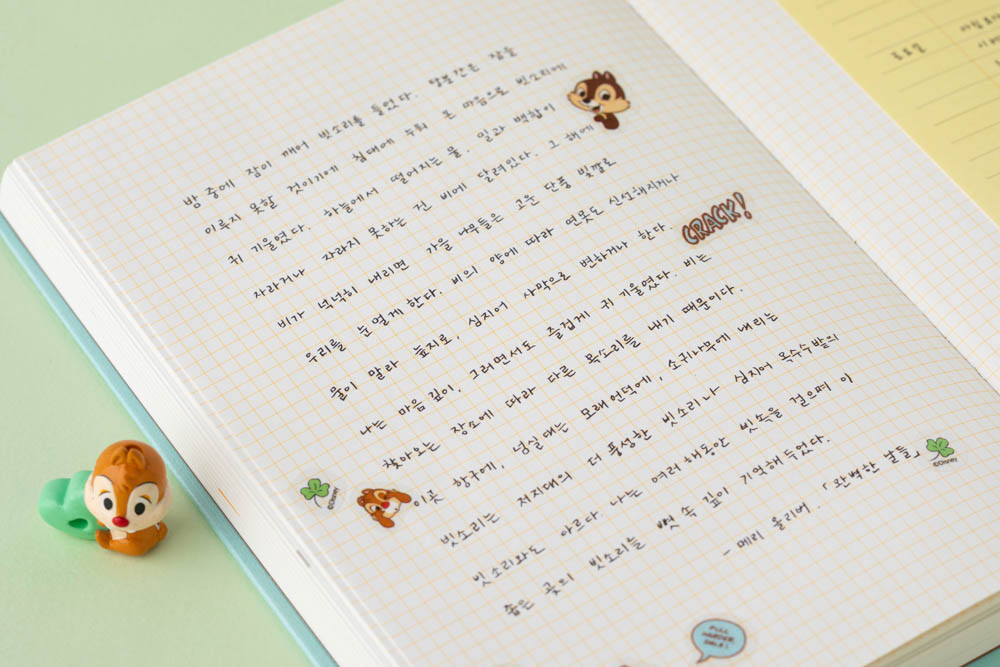 밤 중에 잠이 깨어 빗소리를 들었다. 당분간은 잠을
이루지 못할 것이기에 침대에 누워 온 마음으로 빗소리에
귀 기울였다. 하늘에서 떨어지는 물. 밀과 백합이
자라거나 자라지 못하는 건 비에 달려있다. 그 해에
비가 넉넉히 내리면 가을 나무들은 고운 단풍 빛깔로
우리를 눈 멀게 한다. 비의 양에 따라 연못도 신선해지거나
물이 말라 늪지로, 심지어 사막으로 변하거나 한다.
나는 마음 깊이, 그러면서도 즐겁게 귀 기울였다. 비는
찾아오는 장소에 따라 다른 목소리를 내기 때문이다.
이곳 항구에, 넘실대는 모래 언덕에, 소귀나무에 내리는
빗소리는 저지대의 더 풍성한 빗소리나 심지어 옥수수밭의
빗소리와도 다르다. 나는 여러 해동안 빗속을 걸으며 이
좁은 곳의 빗소리를 뼛속 깊이 기억해 두었다.
- 메리 올리버. 「완벽한 날들」
CRACK!
©Disney
©Disney
PULL
HARDER,
DALE!
토요일